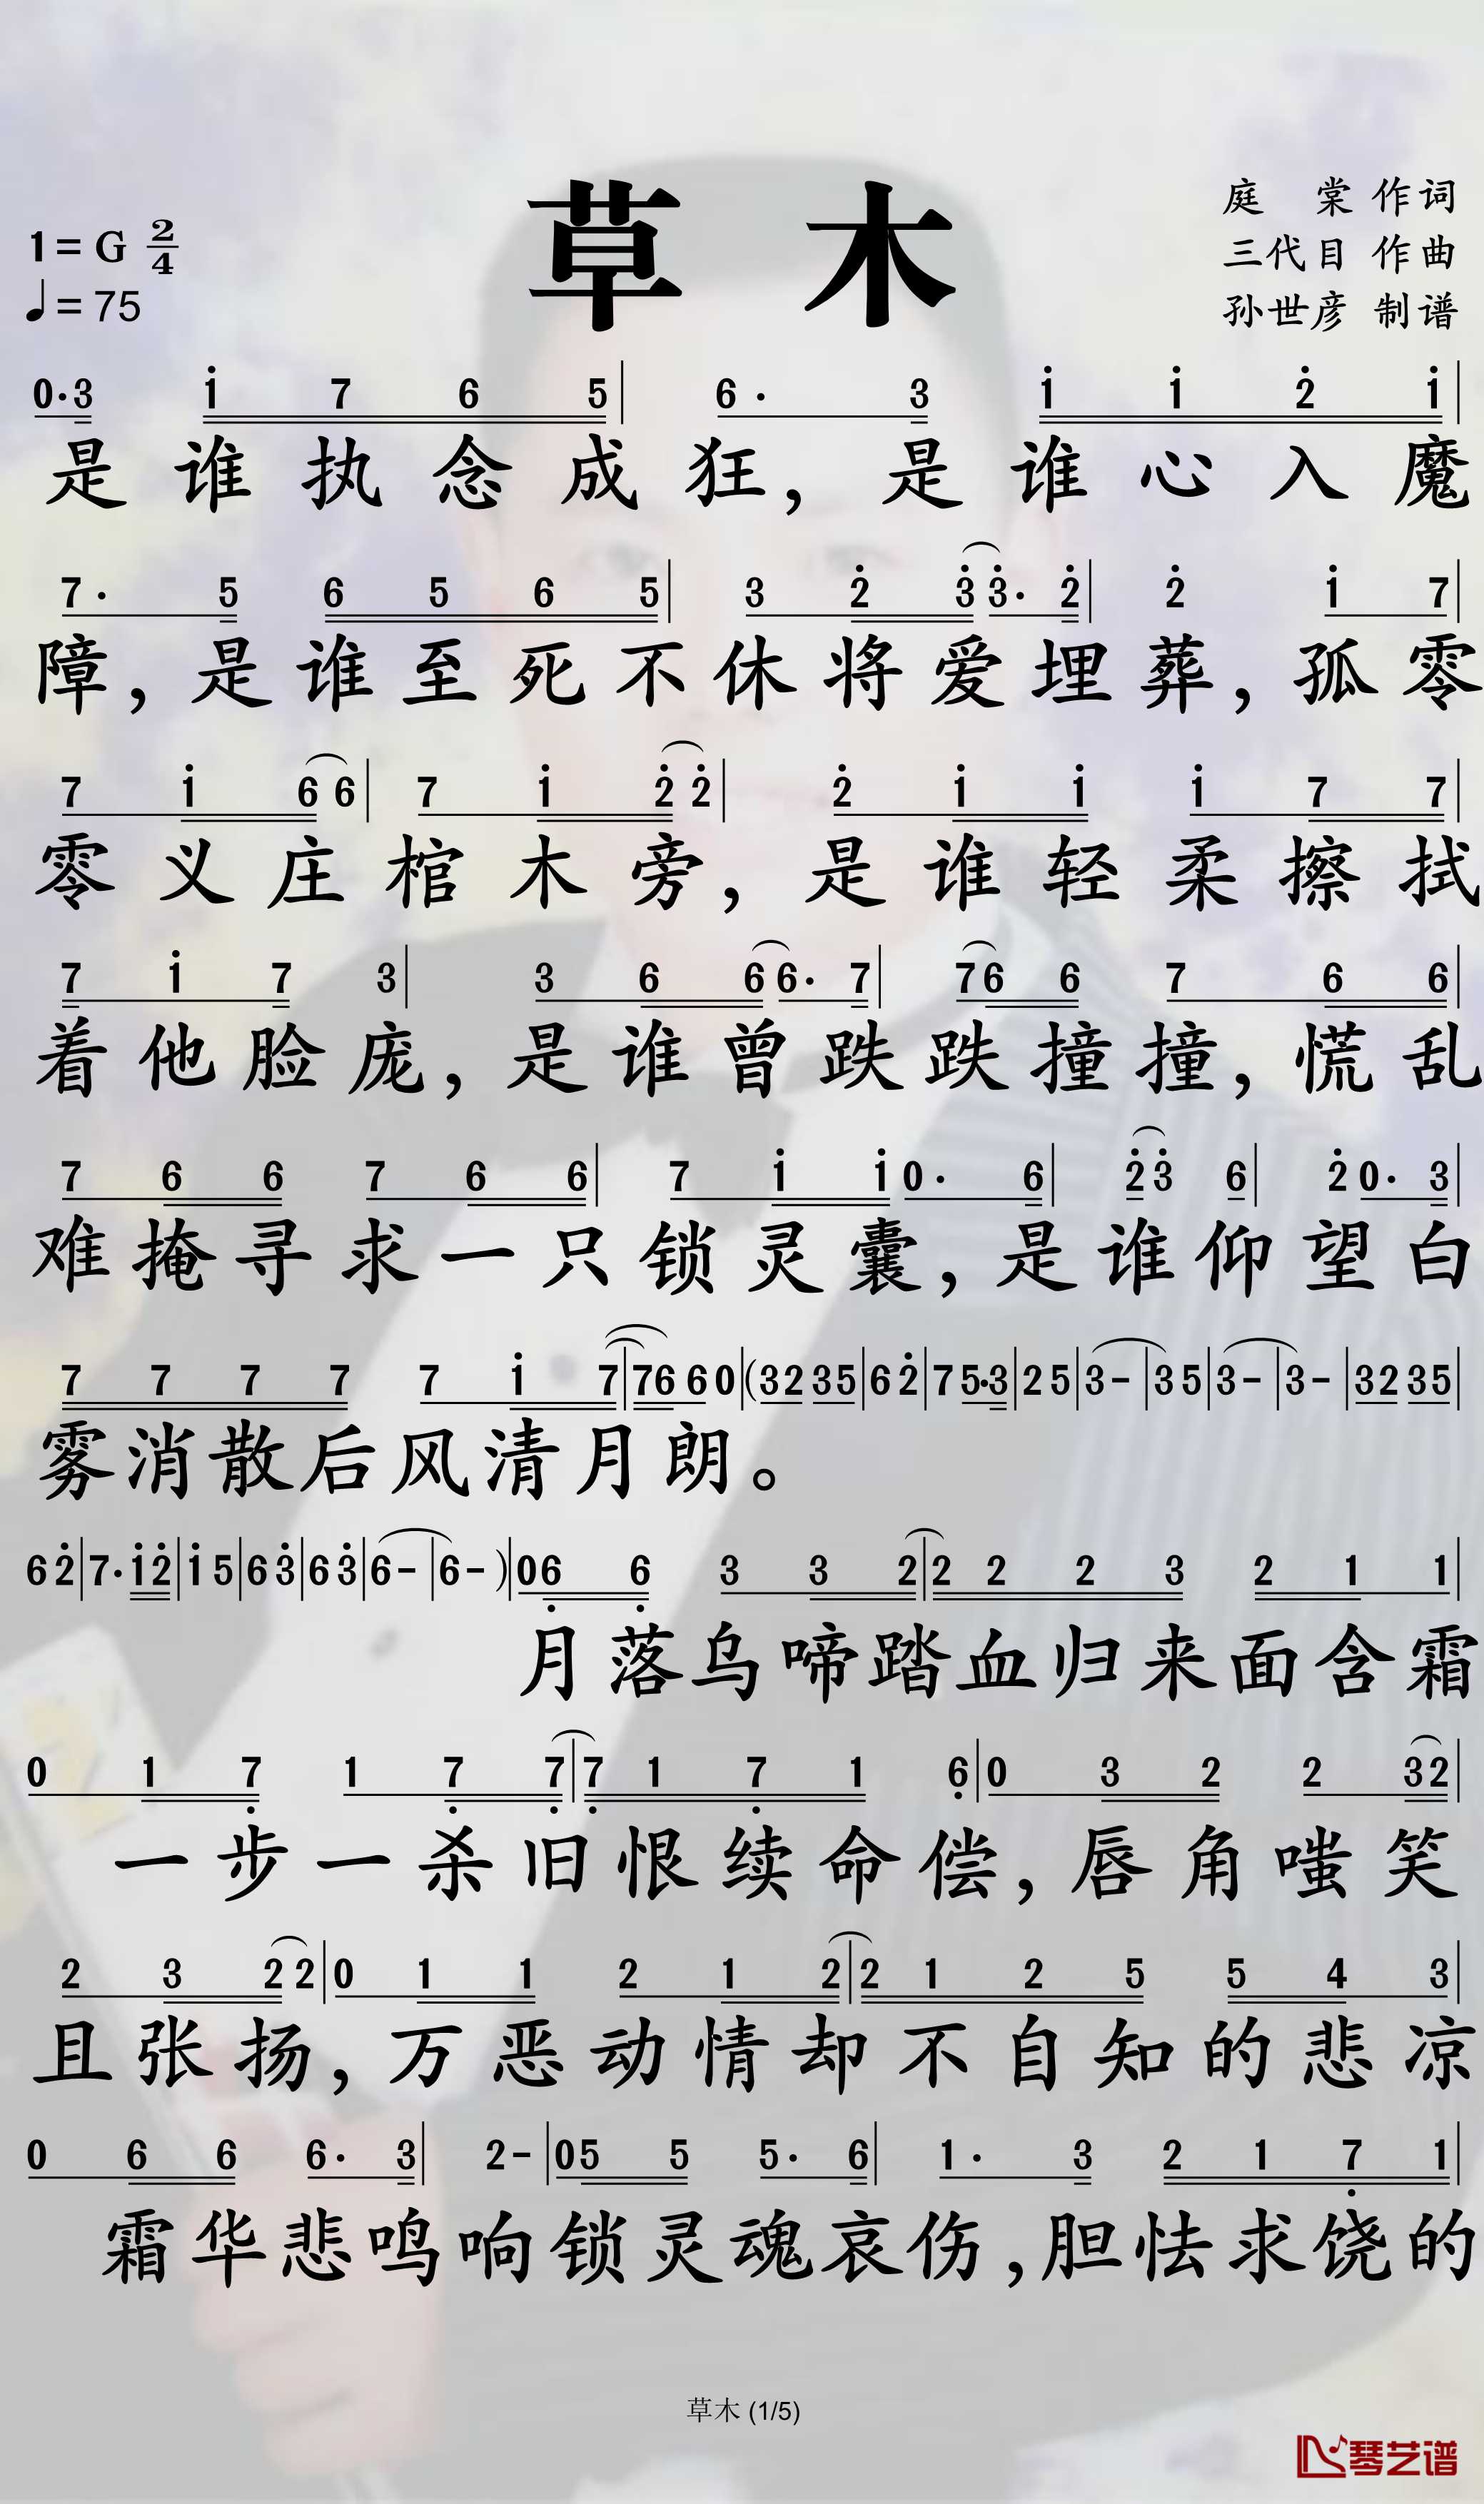 草 木
1=G 2/4
♩=75
庭 棠 作词
三代目 作曲
孙世彦 制谱
0·3 i 7 6 5| 6· 3 i i 2̇ i|
是谁执念成狂,是谁心入魔
7· 5 6 5 6 5| 3 2̇ 3̇ 3̇· 2̇| 2̇ i 7|
障,是谁至死不休将爱埋葬,孤零
7 i 6 6| 7 i 2̇ 2̇| 2̇ i i i 7 7|
零义庄棺木旁,是谁轻柔擦拭
7 i 7 3| 3 6 6 6· 7| 7 6 6 7 6 6|
着他脸庞,是谁曾跌跌撞撞,慌乱
7 6 6 7 6 6| 7 i i 0· 6| 2̇ 3̇ 6| 2̇ 0· 3|
难掩寻求一只锁灵囊,是谁仰望白
7 7 7 7 7 i 7| 7 6 6 0|(3 2 3 5| 6 2̇| 7 5·3| 2 5| 3 -| 3 5| 3 -| 3 -| 3 2 3 5|
雾消散后风清月朗。
6 2̇| 7· i 2̇| i 5| 6 3̇| 6 3̇| 6 -| 6 - )| 0 6̣ 6̣ 3 3 2| 2 2 2 3 2 1 1|
月落乌啼踏血归来面含霜
0 1 7̣ 1 7̣ 7̣| 7̣ 1 7̣ 1 6̣| 0 3 2 2 3 2|
一步一杀旧恨续命偿,唇角嗤笑
2 3 2 2| 0 1 1 2 1 2| 2 1 2 5 5 4 3|
且张扬,万恶动情却不自知的悲凉
0 6 6 6· 3| 2 -| 0 5 5 5· 6| 1· 3 2 1 7̣ 1|
霜华悲鸣响锁灵魂哀伤,胆怯求饶的
草木 (1/5)
琴艺谱